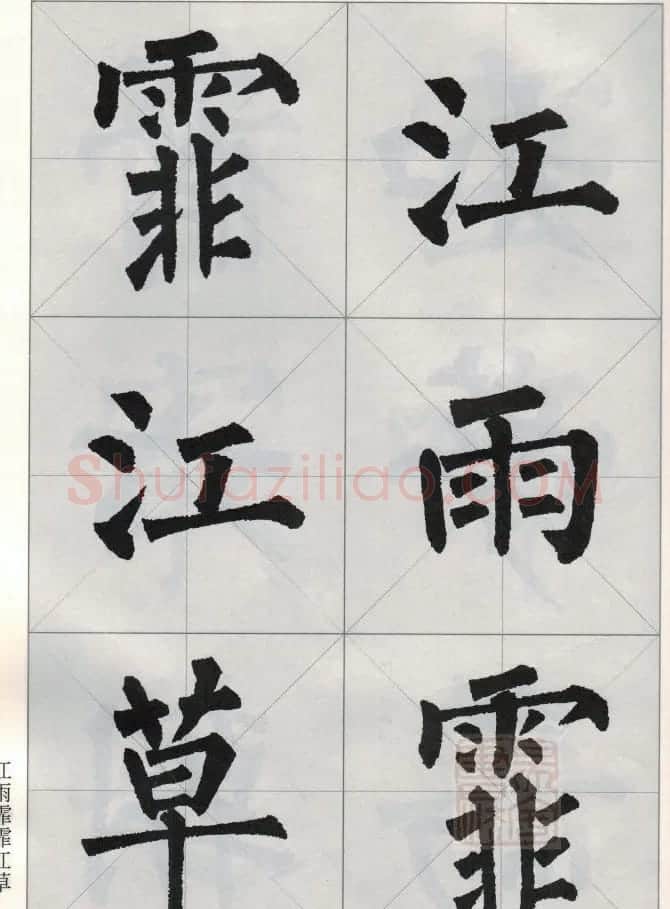 江雨霏
霏江草
江雨霏霏江草
Shufaziliao.COM